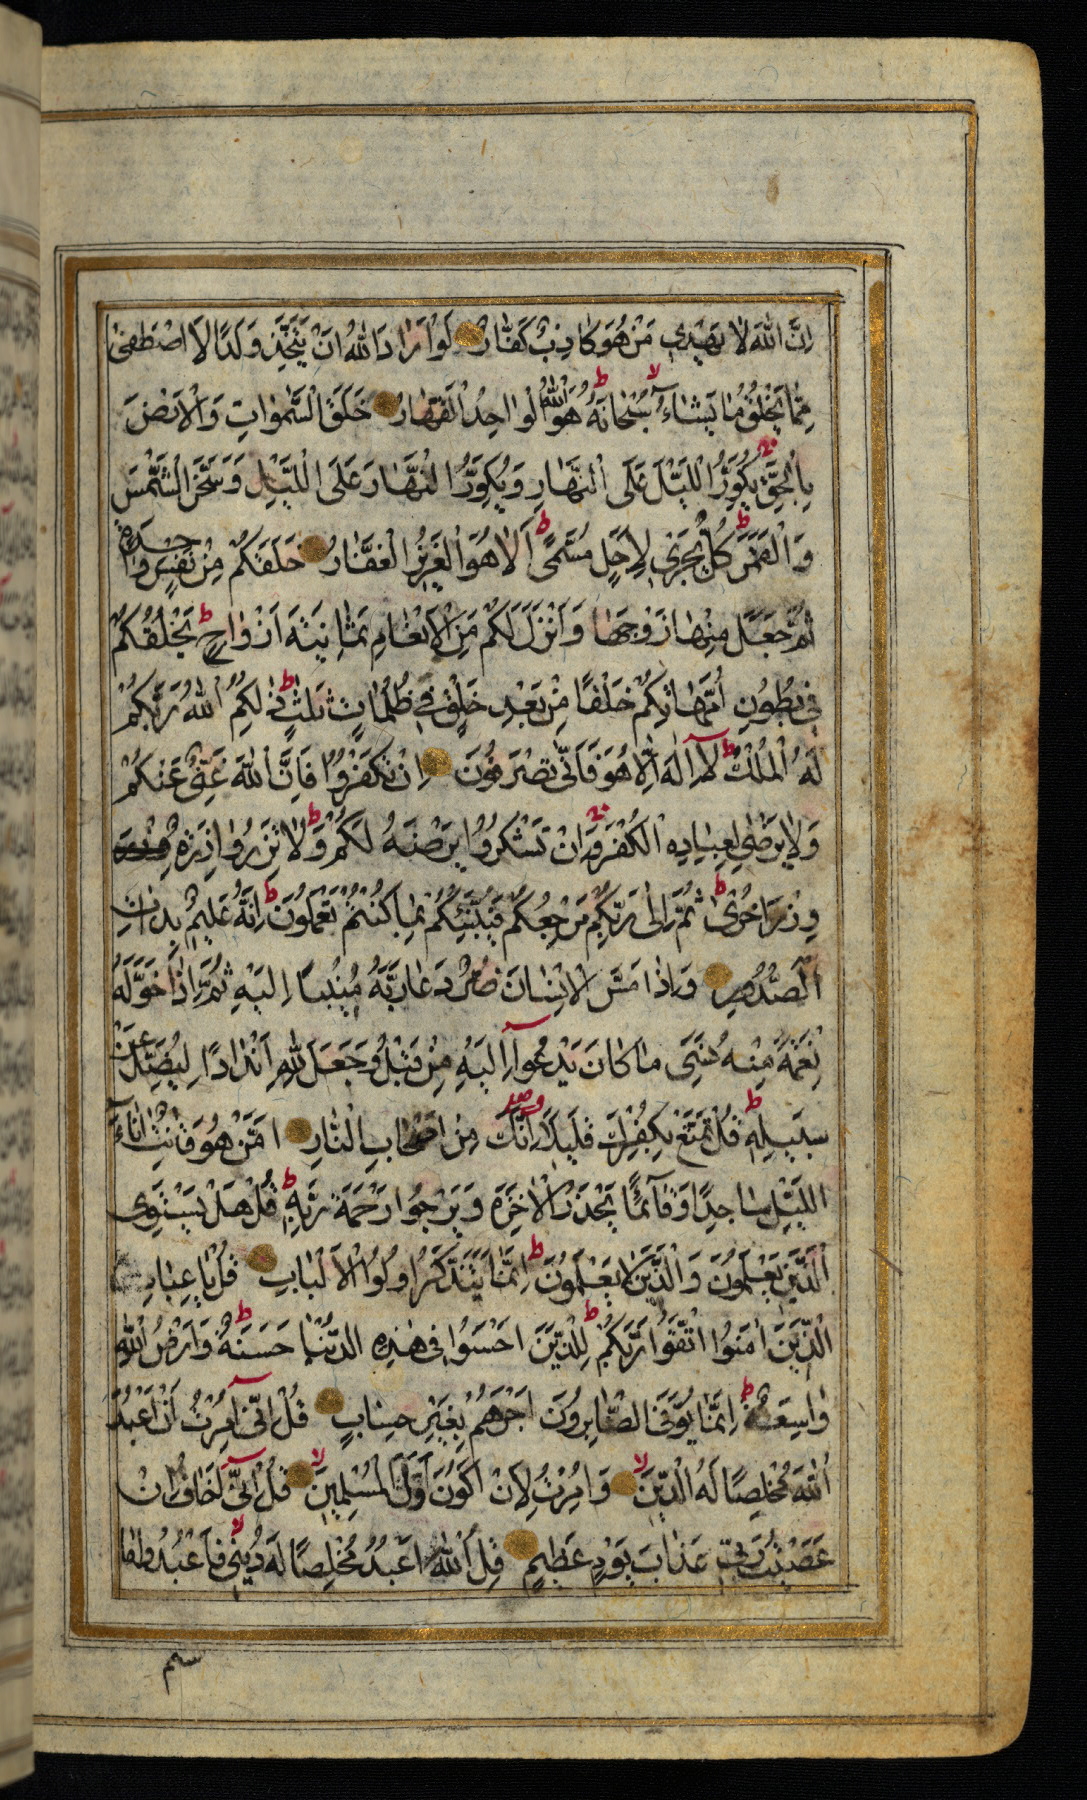 اِنَّ اللّٰهَ لَا يَهْدِى مَنْ هُوَ كَاذِبٌ كَفَّارٌ لَوْ اَرَادَ اللّٰهُ اَنْ يَتَّخِذَ وَلَدًا لَا اصْطَفٰى
مِمَّا يَخْلُقُ مَا يَشَآءُ سُبْحَانَهُ هُوَ اللّٰهُ الْوَاحِدُ الْقَهَّارُ خَلَقَ السَّمٰوَاتِ وَالْاَرْضَ
بِالْحَقِّ يُكَوِّرُ اللَّيْلَ عَلَى النَّهَارِ وَيُكَوِّرُ النَّهَارَ عَلَى اللَّيْلِ وَسَخَّرَ الشَّمْسَ
وَالْقَمَرَ كُلٌّ يَجْرِى لِاَجَلٍ مُسَمًّى اَلَا هُوَ الْعَزِيزُ الْغَفَّارُ خَلَقَكُمْ مِنْ نَفْسٍ وَاحِدَةٍ
ثُمَّ جَعَلَ مِنْهَا زَوْجَهَا وَاَنْزَلَ لَكُمْ مِنَ الْاَنْعَامِ ثَمَانِيَةَ اَزْوَاجٍ يَخْلُقُكُمْ
فِى بُطُونِ اُمَّهَاتِكُمْ خَلْقًا مِنْ بَعْدِ خَلْقٍ فِى ظُلُمَاتٍ ثَلٰثٍ ذٰلِكُمُ اللّٰهُ رَبُّكُمْ
لَهُ الْمُلْكُ لَآ اِلٰهَ اِلَّا هُوَ فَاَنّٰى تُصْرَفُونَ اِنْ تَكْفُرُوا فَاِنَّ اللّٰهَ غَنِىٌّ عَنْكُمْ
وَلَا يَرْضٰى لِعِبَادِهِ الْكُفْرَ وَاِنْ تَشْكُرُوا يَرْضَهُ لَكُمْ وَلَا تَزِرُ وَازِرَةٌ
وِزْرَ اُخْرٰى ثُمَّ اِلٰى رَبِّكُمْ مَرْجِعُكُمْ فَيُنَبِّئُكُمْ بِمَا كُنْتُمْ تَعْمَلُونَ اِنَّهُ عَلِيمٌ بِذَاتِ
الصُّدُورِ وَاِذَا مَسَّ الْاِنْسَانَ ضُرٌّ دَعَا رَبَّهُ مُنِيبًا اِلَيْهِ ثُمَّ اِذَا خَوَّلَهُ
نِعْمَةً مِنْهُ نَسِىَ مَا كَانَ يَدْعُوآ اِلَيْهِ مِنْ قَبْلُ وَجَعَلَ لِلّٰهِ اَنْدَادًا لِيُضِلَّ عَنْ
سَبِيلِهِ قُلْ تَمَتَّعْ بِكُفْرِكَ قَلِيلًا اِنَّكَ مِنْ اَصْحَابِ النَّارِ اَمَّنْ هُوَ قَانِتٌ اٰنَآءَ
اللَّيْلِ سَاجِدًا وَقَآئِمًا يَحْذَرُ الْاٰخِرَةَ وَيَرْجُوا رَحْمَةَ رَبِّهِ قُلْ هَلْ يَسْتَوِى
الَّذِينَ يَعْلَمُونَ وَالَّذِينَ لَا يَعْلَمُونَ اِنَّمَا يَتَذَكَّرُ اُولُوا الْاَلْبَابِ قُلْ يَا عِبَادِ
الَّذِينَ اٰمَنُوا اتَّقُوا رَبَّكُمْ لِلَّذِينَ اَحْسَنُوا فِى هٰذِهِ الدُّنْيَا حَسَنَةٌ وَاَرْضُ اللّٰهِ
وَاسِعَةٌ اِنَّمَا يُوَفَّى الصَّابِرُونَ اَجْرَهُمْ بِغَيْرِ حِسَابٍ قُلْ اِنِّىٓ اُمِرْتُ اَنْ اَعْبُدَ
اللّٰهَ مُخْلِصًا لَهُ الدِّينَ وَاُمِرْتُ لِاَنْ اَكُونَ اَوَّلَ الْمُسْلِمِينَ قُلْ اِنِّىٓ اَخَافُ اِنْ
عَصَيْتُ رَبِّى عَذَابَ يَوْمٍ عَظِيمٍ قُلِ اللّٰهَ اَعْبُدُ مُخْلِصًا لَهُ دِينِى فَاعْبُدُوا مَا